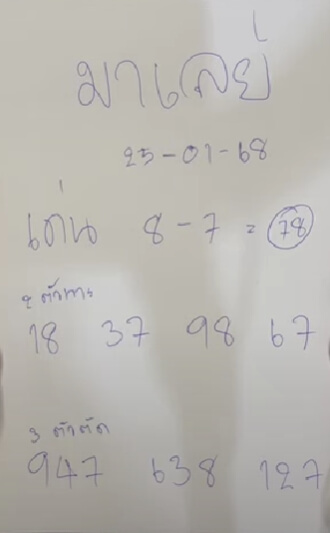 มาเลย์
25-01-68
เด่น 8-7 = 78
2 ตัว
18 37 98 67
3 ตัวตัด
947 638 127